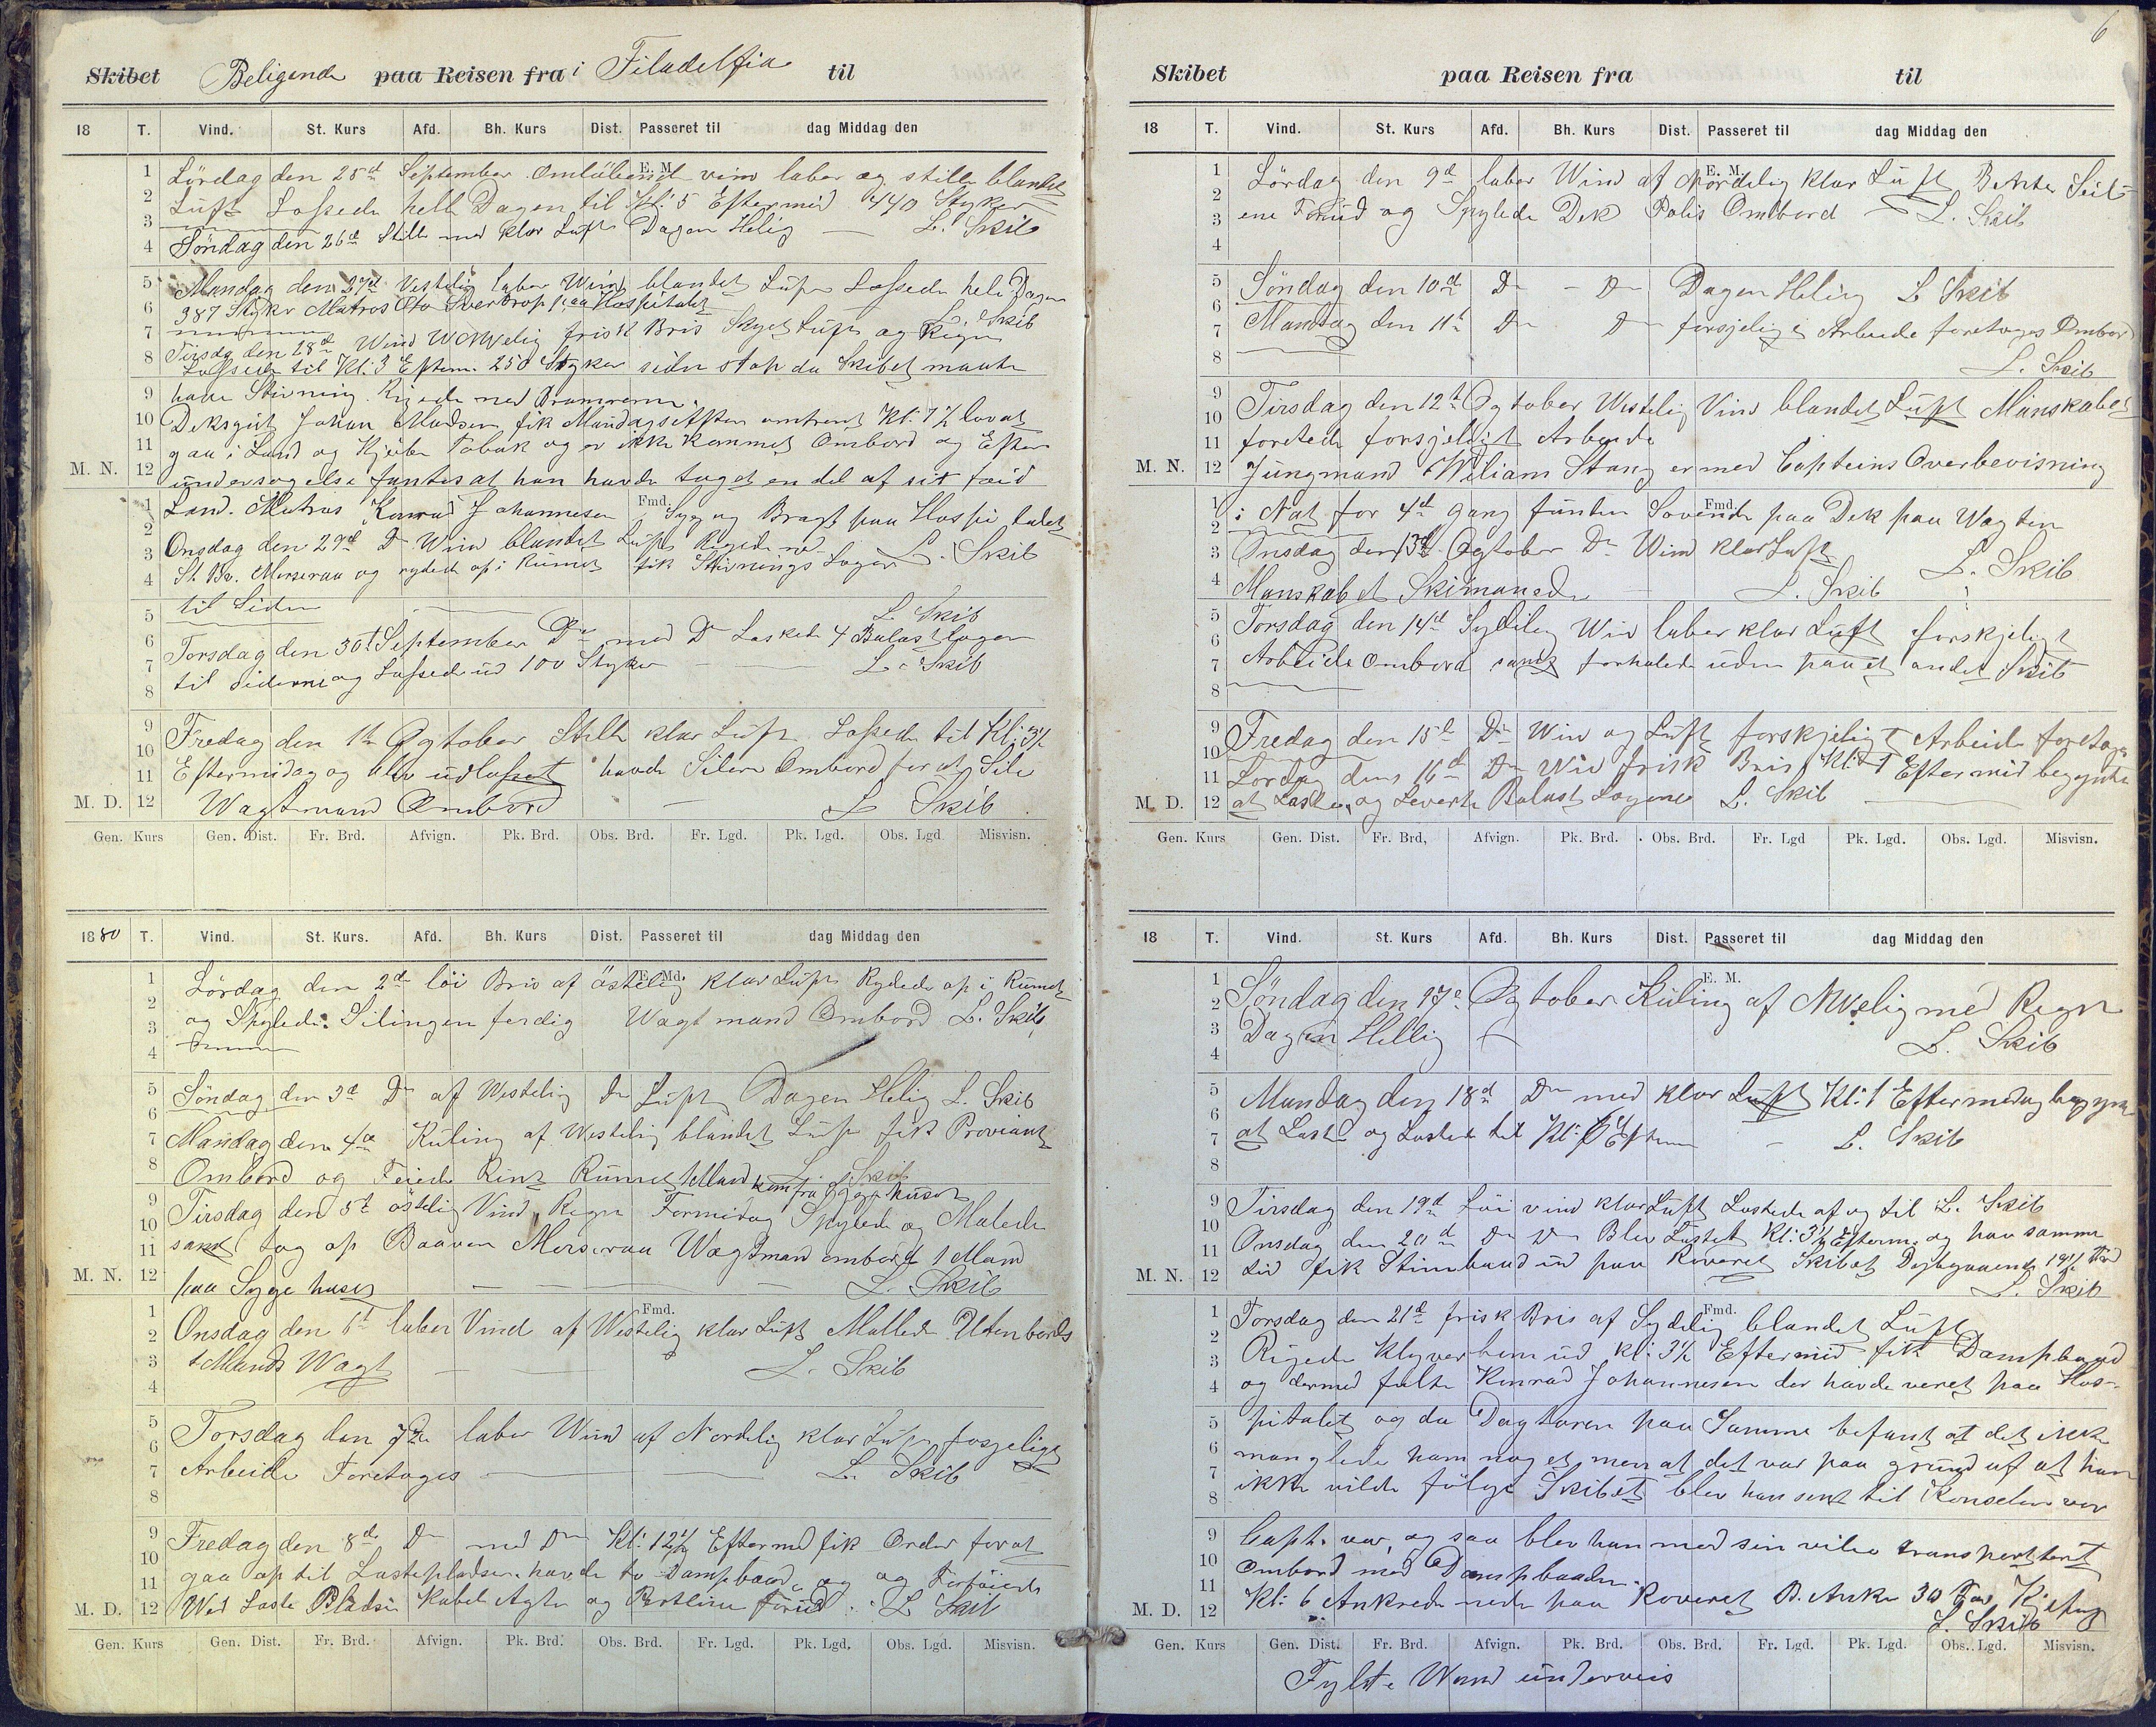 Skibet Beligende paa Reisen fra i Filadelfia til
18 T. Vind. St. Kurs Afd. Bh. Kurs Dist. Passeret til dag Middag den
E. M.
Lördag den 25d September Omlöbende vind laber og stille blandet
Luft Lossede hele Dagen til Kl: 5 Eftermid 440 Styker
Söndag den 26d Stille med klar Luft Dagen Helig — L. Skib
Mandag den 27d Vestelig laber Wind blandet Luft Lossede hele Dagen
387 Styker Matros Oto Sverdrop paa Hospitalet L. Skib
Tirsdag den 28d Wind WNWelig frisk Bris Skyet Luft og Regn
Lossede til Kl: 3 Efterm. 250 Styker siden stop da Skibet maate
have Stivning. Rigede ned Bramrerne.
Deksgut Johan Madsen fik Mandags Aften omtrent Kl: 7½ lov at
gaa i Land og Kjöbe Tobak og er ikke kommet Ombord og Efter
M. N. undersogelse fantes at han havde taget en del af sit töid
Fmd.
Land. Matros Konrad Johannesen Syg og Bragt paa Hospitalet
Onsdag den 29d Do Wind blandet Luft Rigede ned
St. Br. Merseraa og rydede op i Rumet fik Stivnings Loger L. Skib
til Siden
L. Skib
Torsdag den 30t September Do med Do Laskede 4 Balastloger
til siderne og Lossede ud 100 Styker — — L. Skib
Fredag den 1te Ogtober Stille klar Luft Lossede til Kl: 3½
Eftermidag og blev udlosset havde Silere Ombord for at Sile
M. D. Wagtmand Ombord — L. Skib
Gen. Kurs Gen. Dist. Fr. Brd. Afvign. Pk. Brd. Obs. Brd. Fr. Lgd. Pk. Lgd. Obs. Lgd Misvisn.
1880 T. Vind. St. Kurs. Afd. Bh. Kurs Dist. Passeret til dag Middag den
E. Md.
Lördag den 2d löi Bris af östelig klar Luft Rydede op i Rumet
og Spylede. Silingen ferdig Wagtmand Ombord L. Skib
Söndag den 3d Do af Westelig Do Luft Dagen Helig L. Skib
Mandag den 4de Kuling af Westelig blandet Luft fik Proviant
Ombord og Feiede Rent Rumet 1 Mand kom fra Sygehuset L. Skib
Tirsdag den 5t östelig Vind, Regn Formidag Spylede og Malede
samt tog op Baaven Merseraa Wagtman ombord 1 Mand
M. N. paa Sygehuset — — L. Skib
Fmd.
Onsdag den 6t laber Vind af Westelig klar Luft Mallede Utenbords
1 Mands Wagt — — L. Skib
Torsdag den 7de laber Wind af Nordelig klar Luft fosjelige
Arbeide Foretoges — L. Skib
Fredag den 8de Do med Do Kl: 12½ Eftermd fik Order for at
gaa op til Lastepladsen havde to Dampbaade og Fortöiede
M. D. Wed Laste Pladsen Kabel Agter og Pertline forud. L. Skib
Gen. Kurs Gen. Dist. Fr. Brd. Afvign. Pk. Brd. Obs. Brd. Fr. Lgd. Pk. Lgd. Obs. Lgd. Misvisn.
6
Skibet paa Reisen fra til
18 T. Vind. St. Kurs Afd. Bh. Kurs Dist. Passeret til dag Middag den
E. M.
Lördag den 9d laber Wind af Nordelig klar Luft Bente Seil-
ene Forud og Spylede Dek Polis Ombord — L. Skib
Söndag den 10d Do — Do Dagen Helig L. Skib
Mandag den 11t Do Do forsjelige Arbeide foretoges Ombord
L. Skib
Tirsdag den 12t Ogtober Westelig Vind blandet Luft Manskabet
foretede forsjeligt Arbeide
M. N. Jungmand Wiliam Stang er med Capteins Overbevisning
Fmd.
i Nat for 4d gang funten Sovende paa Dek paa Wagten
Onsdag den 13d Ogtober Do Wind klar Luft L. Skib
Manskabet Skimanede L. Skib
Torsdag den 14d Sydelig Win laber klar Luft forskjeligt
Arbeide Ombord samt forhalede uden paa et andet Skib
Fredag den 15d Do Win og Luft forskjeligt Arbeide foretoges
Lördag den 16d Do Win frisk Bris Kl: 1 Eftermid begynte
M. D. at Laste, og Leverte Balast Logene L. Skib
Gen. Kurs Gen. Dist. Fr. Brd, Afvign. Pk. Brd. Obs. Brd. Fr. Lgd Pk. Lgd. Obs. Lgd. Misvisn.
18 T. Vind. St. Kurs Afd. Bh. Kurs Dist. Passeret til dag Middag den
E. M.
Söndag den 17d Ogtober Kuling af NWelig med Regn
Dagen Hellig L. Skib
Mandag den 18d Do med klar Luft Kl: 1 Eftermidag begynte
at Laste og Lastede til Kl: 6 Efterm — L. Skib
Tirsdag den 19d Löi vind klar Luft Lastede af og til L. Skib
Onsdag den 20d Do Do Blev Lastet Kl: 3½ Efterm. og paa samme
M. N. tid fik Stimbaad ud paa Reveret Skibet Dybgaaende 19½ Fod
L. Skib
Fmd.
Torsdag den 21d frisk Bris af Sydelig blandet Luft
Rigede Klyverbom ud Kl: 3½ Eftermid fik Dampbaad
og dermed fulte Konrad Johannesen der havde veret paa Hos-
pitalet og da Dagtoren paa Samme befant at det ikke
manglede ham noget men at det var paa grund af at han
ikke vilde fölge Skibet blev han sent til Konselen vor
Capt. var, og saa blev han med sin vilie transporttert
Ombord med Dampbaaden.
M. D. Kl: 6 Ankrede nede paa Roveret B. Anker 30 Fav Kjeting
L. Skib
Gen. Kurs Gen. Dist. Fr. Brd. Afvign. Pk. Brd. Obs. Brd. Fr. Lgd. Pk. Lgd. Obs. Lgd. Misvisn.
Fylte Wand underveis